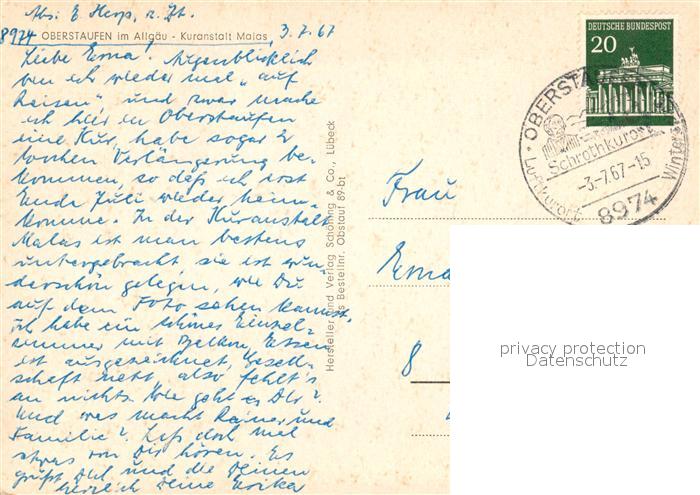 Abs: E. Hesp, z. Zt.
8974 OBERSTAUFEN im Allgäu - Kuranstalt Malas, 3.7.67
Liebe Erna! Augenblicklich
bin ich wieder mal „auf
Reisen", und zwar mache
ich hier in Oberstaufen
eine Kur, habe sogar 2
Wochen Verlängerung be-
kommen, so daß ich erst
Ende Juli wieder heim-
komme. In der Kuranstalt
Malas ist man bestens
untergebracht, sie ist wun-
derschön gelegen, wie Du
auf dem Foto sehen kannst,
ich habe ein schönes Einzel-
zimmer mit Balkon, Essen
ist ausgezeichnet, Gesell-
schaft nett, also fehlt's
an nichts. Wie geht es Dir?
Und was macht Rainer und
Familie? Laß doch mal
etwas von Dir hören. Es
grüßt Dich und die Deinen
herzlich Deine Erika
Hersteller und Verlag Schöning & Co., Lübeck
Bestellnr. Obstauf 89-bt
DEUTSCHE BUNDESPOST
20
OBERSTAUFEN
Schrothkurort
-3.-7.67-15
Luftkurort
Winter
8974
Frau
Erna
8
privacy protection
Datenschutz